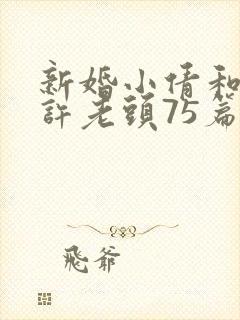 新婚小倩和
許老頭75篇
飛爺